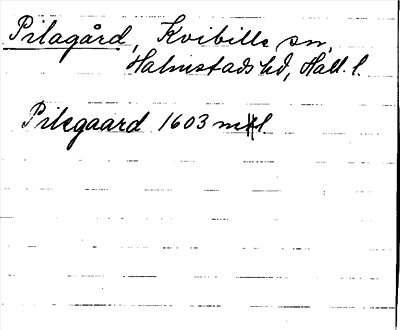 Pilagård, Kvibille sn,
Halmstads hd, Hall. l.
Pilegaard 1603